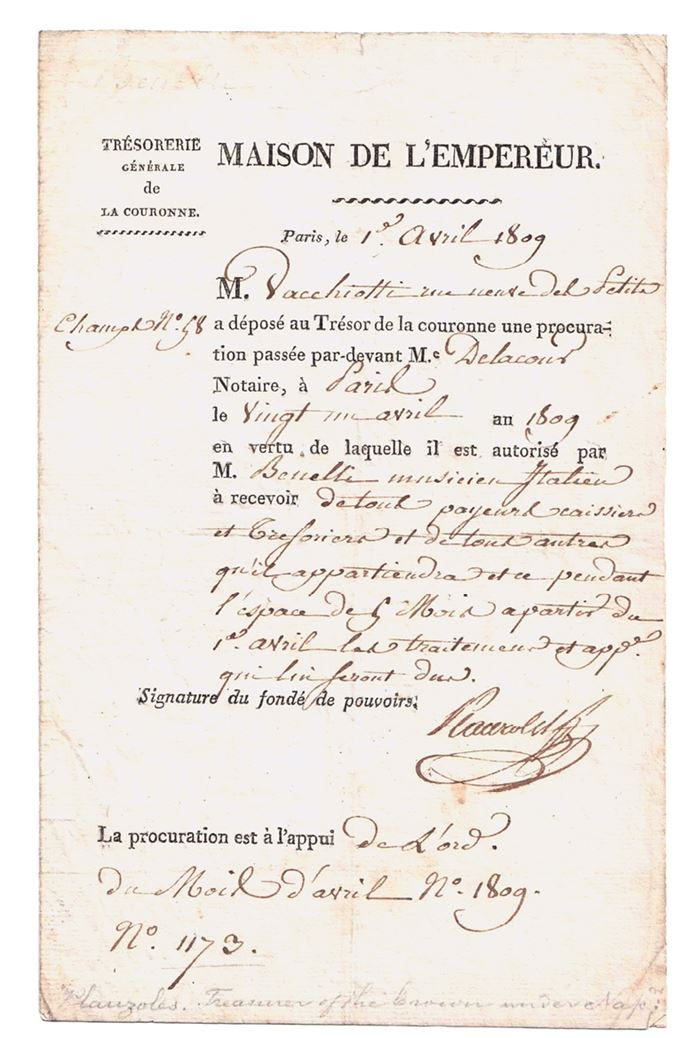 TRÉSORERIE
GÉNÉRALE
de
LA COURONNE.
MAISON DE L'EMPEREUR.
Paris, le 1er. Avril 1809
M. Pacchiotti rue neuve des Petits
Champs No. 58 a déposé au Trésor de la couronne une procura-
tion passée par-devant M.e Delacour
Notaire, à Paris
le Vingt un avril an 1809
en vertu de laquelle il est autorisé par
M. Benelli musicien Italien
à recevoir de tous payeurs caissiers
et Tresoriers et de tous autres
qu'il appartiendra et ce pendant
l'espace de 5 Mois a partir du
1er. avril les traitemens et app.
qui lui seront dus.
Signature du fondé de pouvoirs.
La procuration est à l'appui de L'ord.
du Mois d'avril No. 1809.
No. 1173.
Plauzoles. Treasurer of the Crown under Nap: